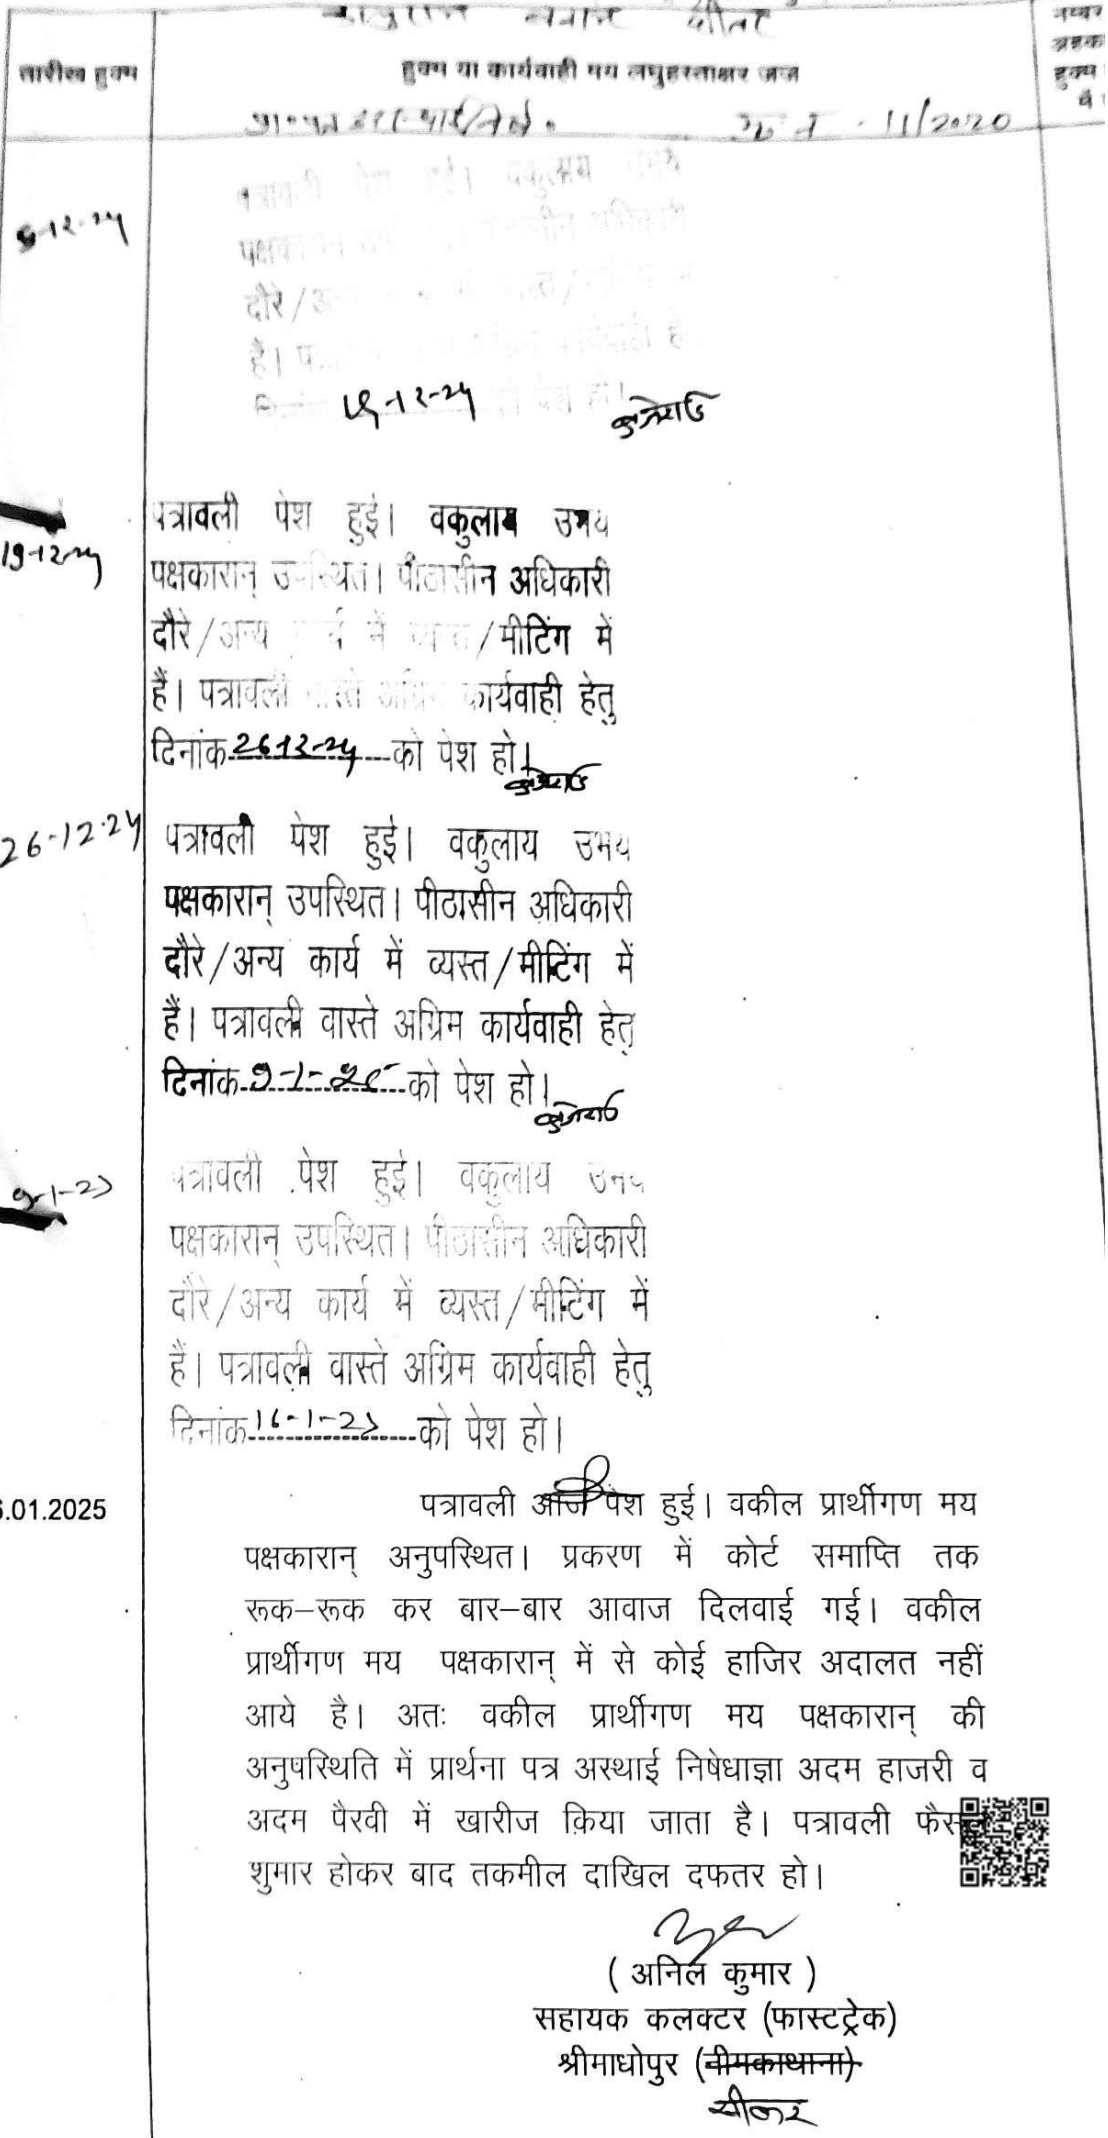 बनाम
तारीख हुक्म
हुक्म या कार्यवाही मय लघुहस्ताक्षर जज
नम्बर
हुक्म
11/2020
पत्रावली पेश हुई। वकुलाय उभय
6-12-24
पक्षकारान् अधिकारी
दौरे/
हैं। कार्यवाही
19-12-24 पेश हो।
पत्रावली पेश हुई। वकुलाय उभय
19-12-24
पक्षकारान् उपस्थित। पीठासीन अधिकारी
दौरे/अन्य कार्य में व्यस्त/मीटिंग में
हैं। पत्रावली वास्ते अग्रिम कार्यवाही हेतु
दिनांक 26-12-24 को पेश हो।
26-12-24 पत्रावली पेश हुई। वकुलाय उभय
पक्षकारान् उपस्थित। पीठासीन अधिकारी
दौरे/अन्य कार्य में व्यस्त/मीटिंग में
हैं। पत्रावली वास्ते अग्रिम कार्यवाही हेतु
दिनांक 9-1-25 को पेश हो।
9-1-25 पत्रावली पेश हुई। वकुलाय उभय
पक्षकारान् उपस्थित। पीठासीन अधिकारी
दौरे/अन्य कार्य में व्यस्त/मीटिंग में
हैं। पत्रावली वास्ते अग्रिम कार्यवाही हेतु
दिनांक 16-1-25 को पेश हो।
6.01.2025 पत्रावली आज पेश हुई। वकील प्रार्थीगण मय
पक्षकारान् अनुपस्थित। प्रकरण में कोर्ट समाप्ति तक
रूक–रूक कर बार–बार आवाज दिलवाई गई। वकील
प्रार्थीगण मय पक्षकारान् में से कोई हाजिर अदालत नहीं
आये है। अतः वकील प्रार्थीगण मय पक्षकारान् की
अनुपस्थिति में प्रार्थना पत्र अस्थाई निषेधाज्ञा अदम हाजरी व
अदम पैरवी में खारीज किया जाता है। पत्रावली फैसल
शुमार होकर बाद तकमील दाखिल दफतर हो।
( अनिल कुमार )
सहायक कलक्टर (फास्टट्रेक)
श्रीमाधोपुर (नीमकाथाना)
सीकर